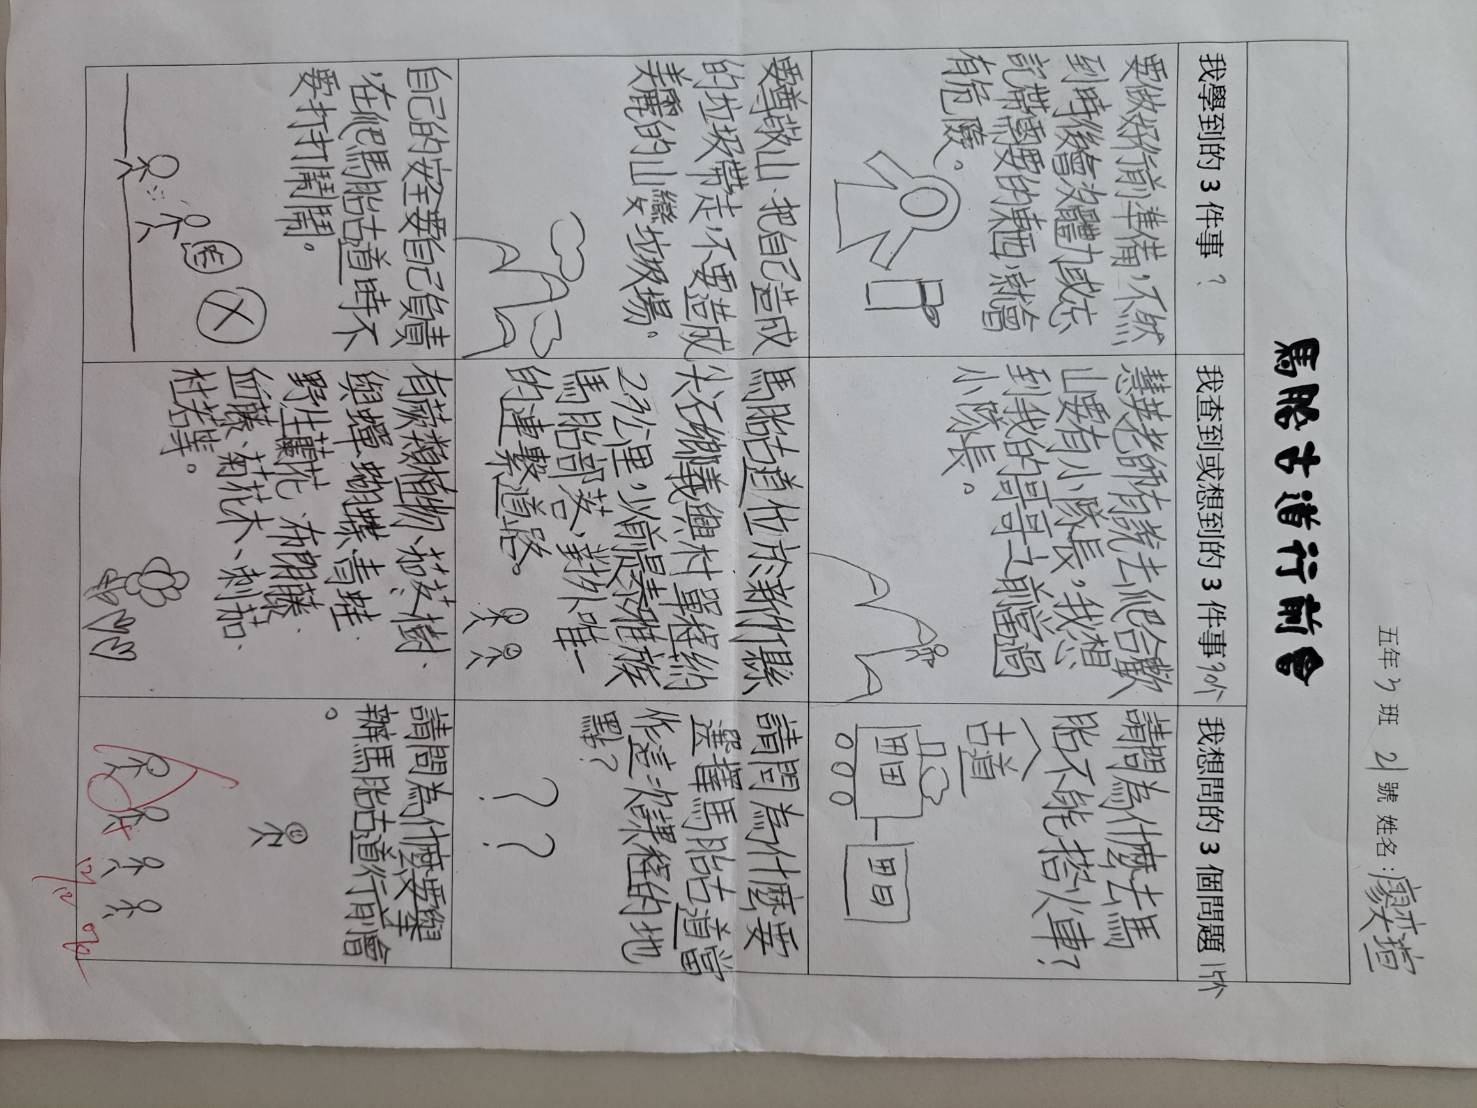 五年3班 21號 姓名:廖奕萱
馬胎古道行前會
我學到的3件事?
我查到或想到的3件事?
我想問的3個問題
要做好行前準備,不然
到時後會沒體力或忘
記帶需要的東西,就會
有危險。
慧芳老師有說去爬合歡
山要有小隊長,我想
到我的哥哥之前當過
小隊長。
請問為什麼去馬
胎不能搭火車?
古道
要尊敬山,把自己造成
的垃圾帶走,不要造成
美麗的山變垃圾場。
馬胎古道位於新竹縣
尖石鄉義興村單程約
2.3公里,以前是泰雅族
馬胎部落、對外唯一
的連繫道路。
請問為什麼要
選擇馬胎古道當
作這次課程的地
點?
??
自己的安全要自己負責
,在爬馬胎古道時不
要打打鬧鬧。
有蕨類植物、茄苳樹、
與蟬、蝴蝶、青蛙、
野生蘭花、布朗藤、
血藤、菊花木、刺茄、
杜若等。
請問為什麼要舉
辦馬胎古道行前會
。